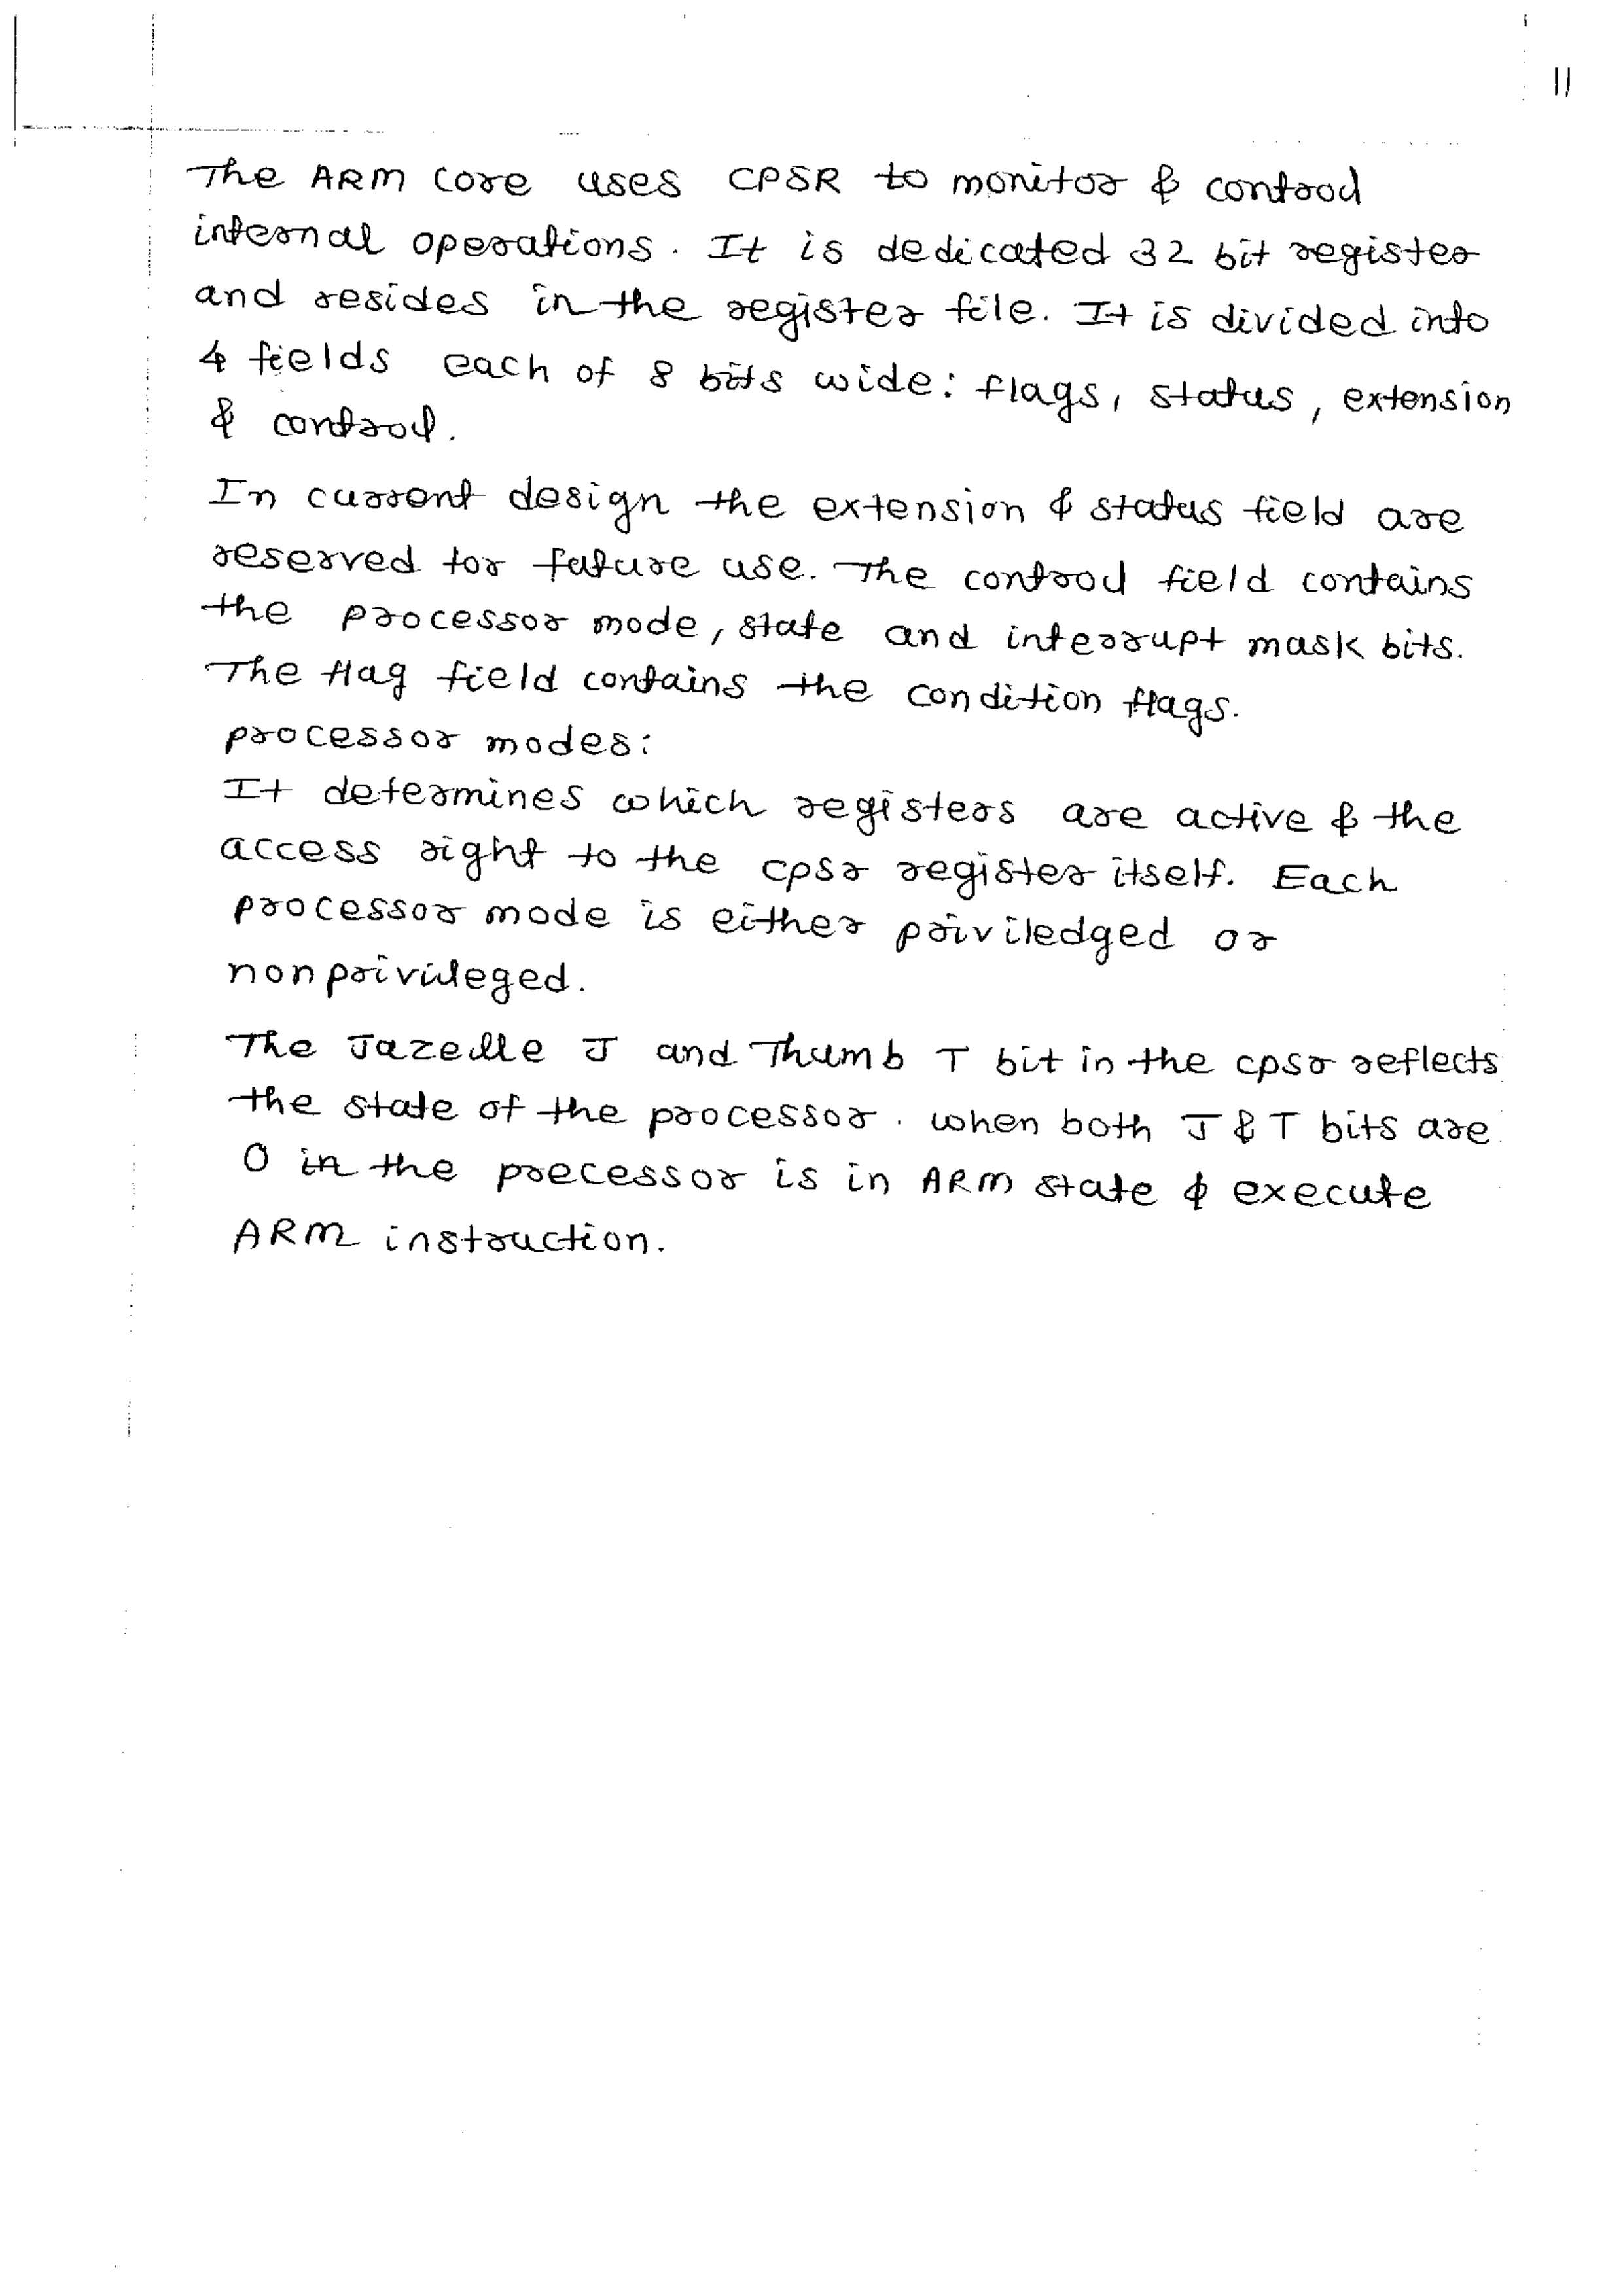 11
The ARM core uses CPSR to monitor & control
internal operations. It is dedicated 32 bit register
and resides in the register file. It is divided into
4 fields each of 8 bits wide: flags, status, extension
& control.
In current design the extension & status field are
reserved for future use. The control field contains
the processor mode, state and interrupt mask bits.
The flag field contains the condition flags.
processor modes:
It determines which registers are active & the
access right to the cpsr register itself. Each
processor mode is either priviledged or
nonprivileged.
The Jazelle J and Thumb T bit in the cpsr reflects
the state of the processor. when both J & T bits are
0 in the precessor is in ARM state & execute
ARM instruction.